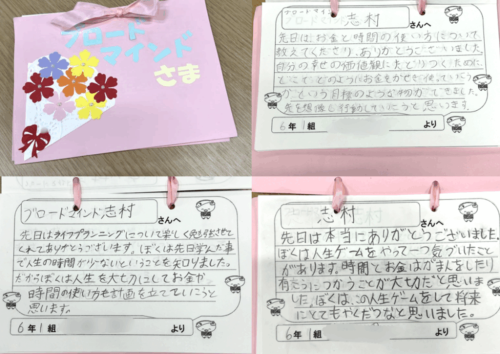 ブロード
マインド
さま
ブロードマインド
志村
さんへ
先日はお金と時間の使い方について
教えてくださり、ありがとうございました。
自分の幸せの価値観にたどりつくために、
どこでどのようにお金をかせぎ、使っていくの
か、という目標のような物ができました。
先を想像し行動していこうと思います。
6年1組
より
ブロードマインド志村
さんへ
先日はライフプランニングについて楽しく勉強させて
くれてありがとうございます。ぼくは先日学んだ事
で人生の時間が少ないということを知りました。
だからぼくは人生を大切にしてお金や
時間の使い方を計画を立てていこうと
思います。
6年1組
より
志村
さんへ
先日は本当にありがとうございました。
ぼくは人生ゲームをやって一つ気づいたこと
があります。時間とお金はがまんをしたり
有こうにつかうことが大切だと思いま
した。ぼくは、この人生ゲームをして将来
にとてもやくだつなと思いました。
6年1組
より